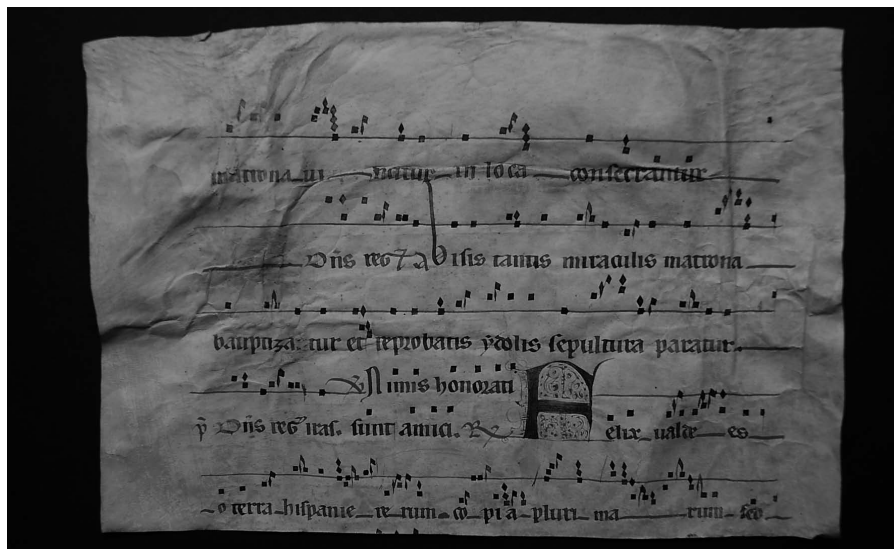 matrona ui nitur in loca consecrantur
Dñs reg Visis tantis miraculis matrona
bauptizatur et reprobatis ydolis sepultura paratur.
Nimis honorati
p̄ Dñs reg uit. sunt amici. R Felix ualde es
o terra hispanie rerum copia plurimarum sed